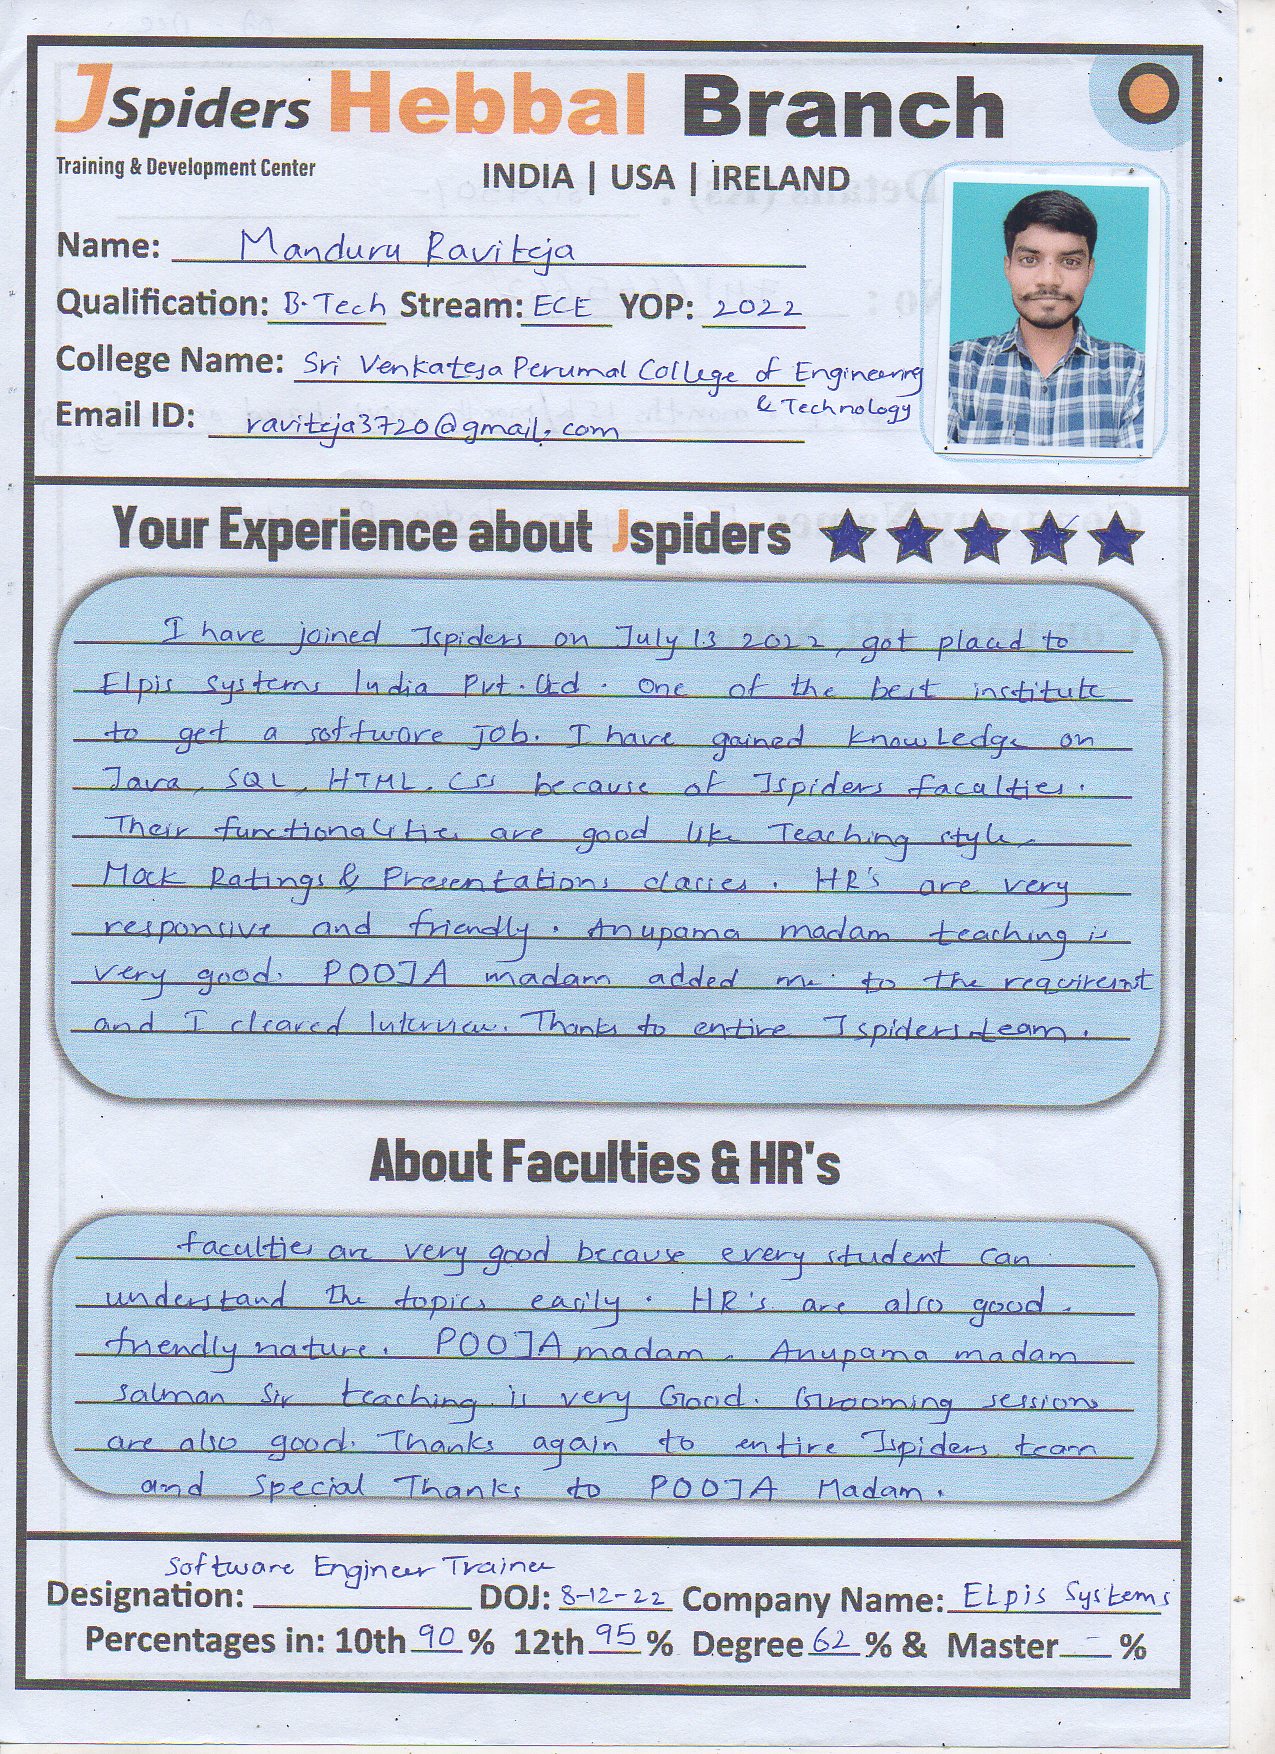 JSpiders Hebbal Branch
Training & Development Center
INDIA | USA | IRELAND
Name: Manduru Raviteja
Qualification: B.Tech Stream: ECE YOP: 2022
College Name: Sri Venkatesa Perumal College of Engineering
& Technology
Email ID: raviteja3720@gmail.com
Your Experience about Jspiders
I have joined Jspiders on July 13 2022, got placed to
Elpis Systems India Pvt. Ltd. One of the best institute
to get a software job. I have gained knowledge on
Java, SQL, HTML, CSS because of Jspiders faculties.
Their functionalities are good like Teaching style,
Mock Ratings & Presentations classes. HR's are very
responsive and friendly. Anupama madam teaching is
very good. POOJA madam added me to the
and I cleared Interview. Thanks to entire Jspiders team.
About Faculties & HR's
faculties are very good because every student can
understand the topics easily. HR's are also good.
friendly nature. POOJA madam, Anupama madam
Salman Sir teaching is very Good. Grooming sessions
are also good. Thanks again to entire Jspiders team
and Special Thanks to POOJA Madam.
Software Engineer Trainee
Designation: DOJ: 8-12-22 Company Name: ELpis Systems
Percentages in: 10th 90 % 12th 95 % Degree 62 % & Master - %